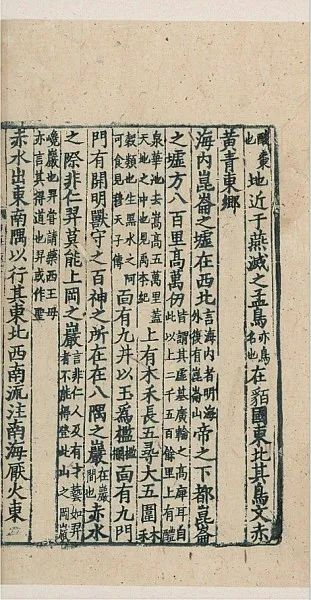 酸棗也地近于燕滅之孟鳥亦鳥名也在貊國東北其鳥文赤
黃青東鄉
海內崑崙之墟在西北言海內者明海外復有崑崙山帝之下都崑崙
之墟方八百里高萬仞皆謂其虛基廣輪之高庳耳自此以上二千五百餘里上有醴
泉華池去嵩高五萬里蓋天地之中也見禹本紀上有木禾長五尋大五圍木禾
穀類也生黑水之阿可食見穆天子傳面有九井以玉爲檻檻欄面有九門
門有開明獸守之百神之所在在八隅之巖在巖間也赤水
之際非仁羿莫能上岡之巖言非仁人及有才藝如羿者不能得登此山之岡嶺
巉巖也羿嘗請藥西王母亦言其得道也羿或作聖
赤水出東南隅以行其東北西南流注南海厭火東